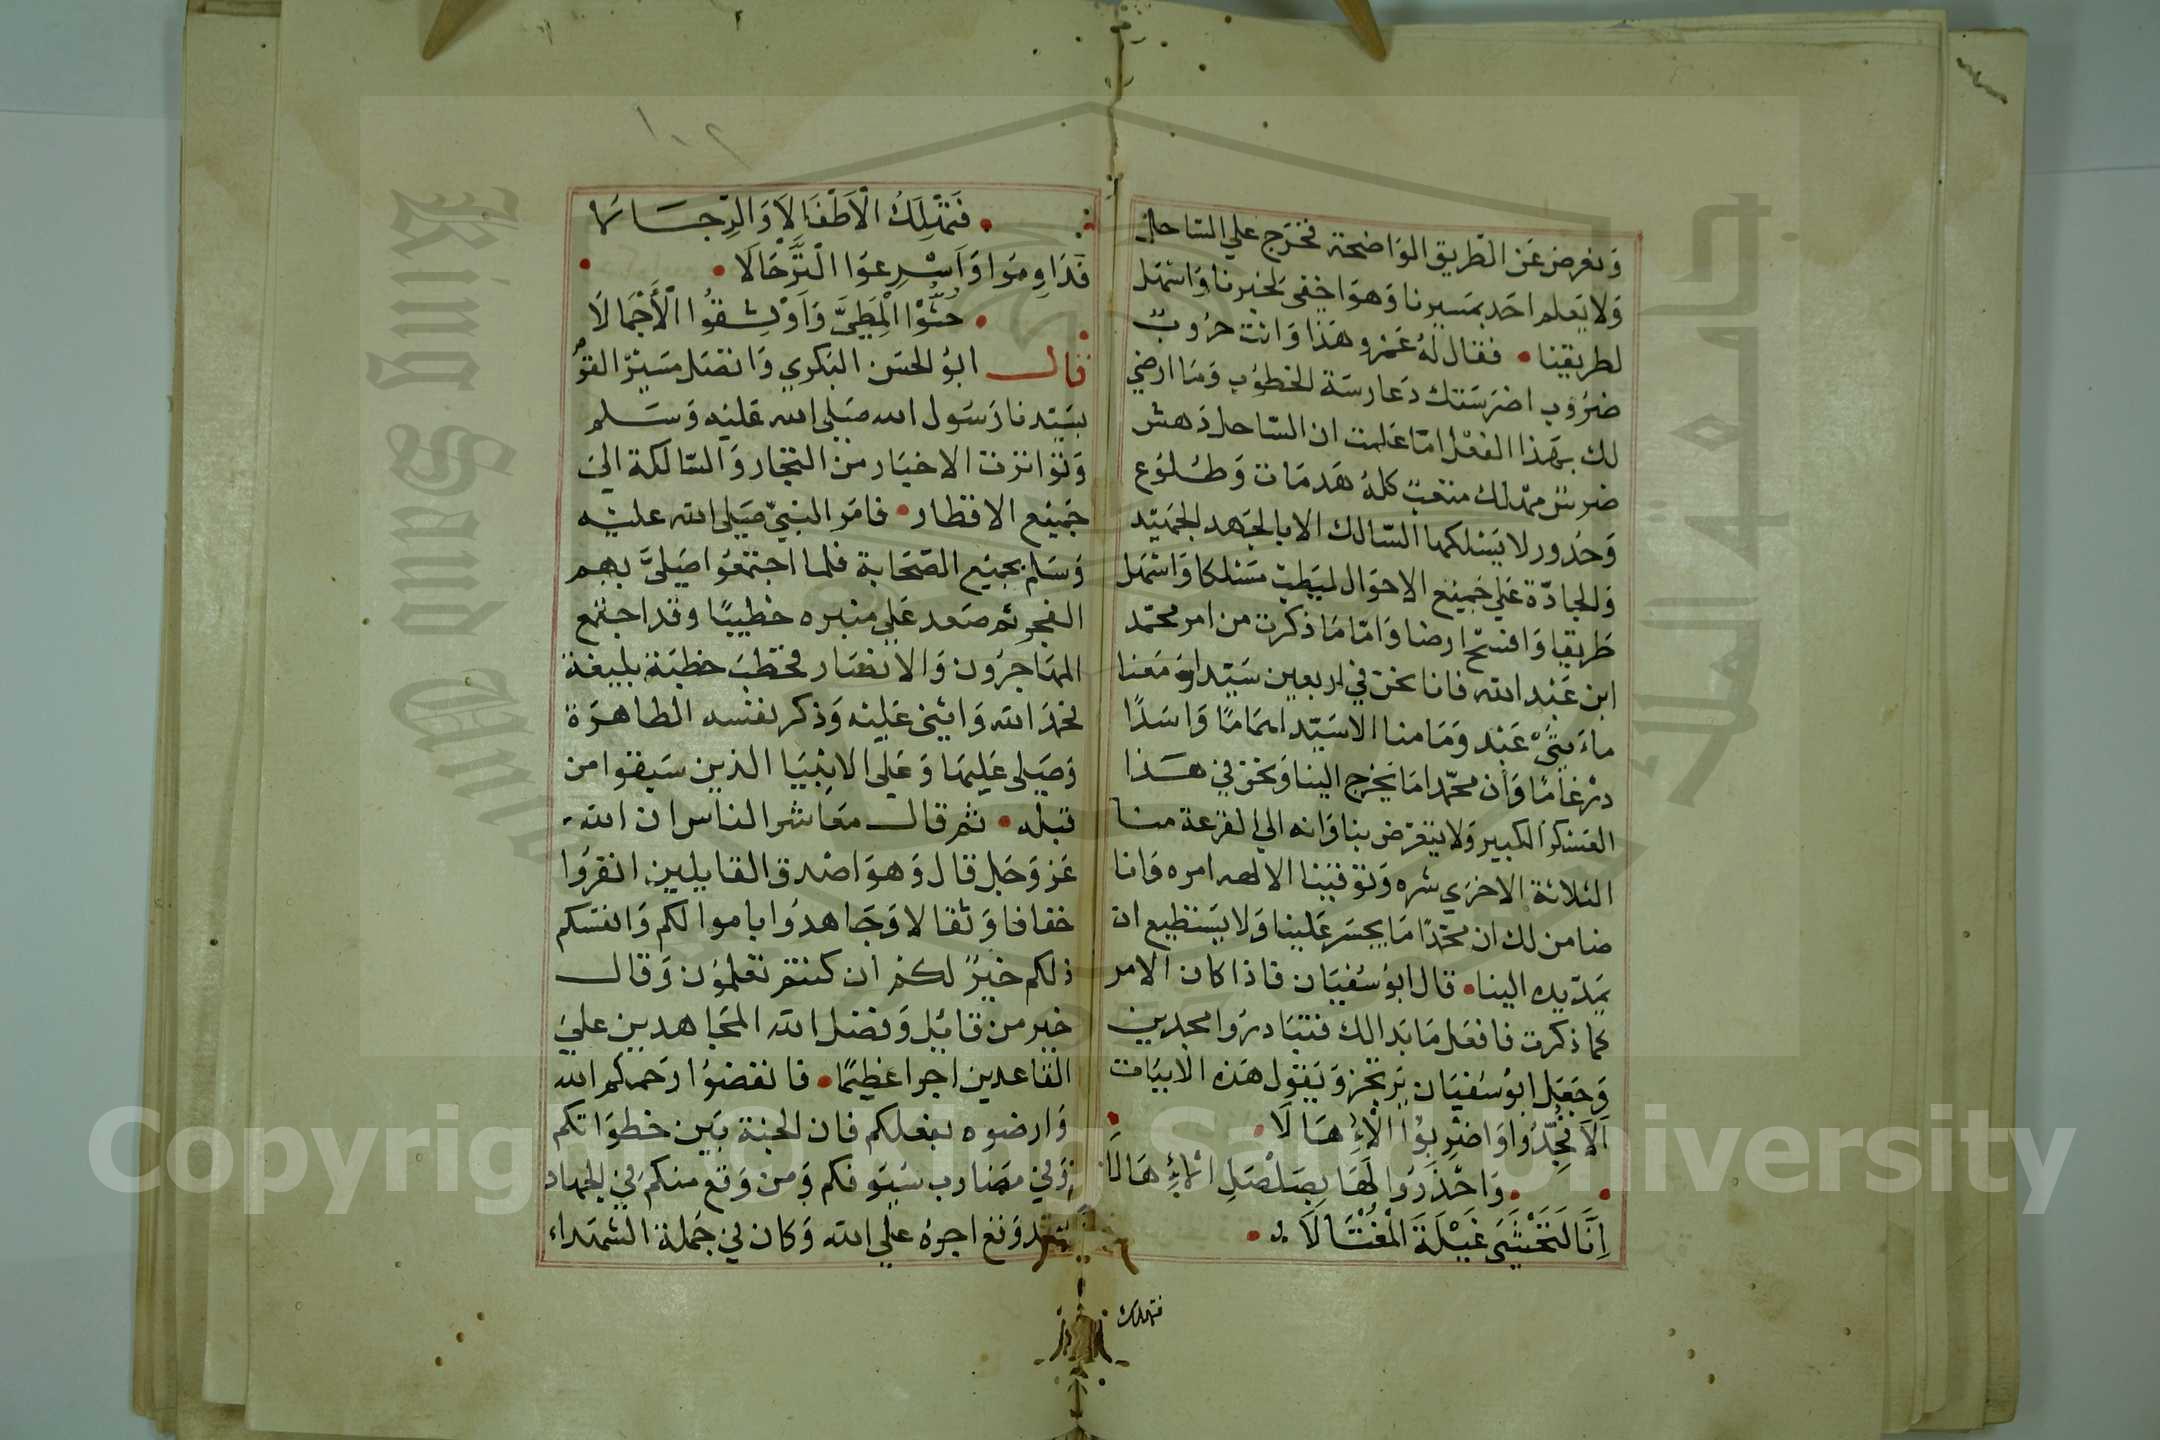 ونعرض عن الطريق الواضحة فخرج علي الساحل
ولا يعلم احد بمسيرنا وهو اخفي لخبرنا واسهل
لطريقنا • فقال له عمرو هذا وانت حروب
ضروب اضرستك دعارسة الخطوب وما ارضي
لك بهذا الفعل اما علمت ان الساحل دهش
ضرس ممدلك متعب كله هدمات وطلوع
وحدور لا يسلكها السالك الا بالجهد الجهيد
والجادة علي جميع الاحوال ليطيب مسلكا واسهل
طريقا وافسح ارضا واما ما ذكرت من امر محمد
ابن عبد الله فانا نحن في اربعين سيدا ومعنا
مايتي عبد وما منا الا سيدا هماما واسدا
درغاما وان محمدا ما يخرج الينا ونحن في هذا
العسكر الكبير ولا يتعرض بنا وانه الي الفزعة منا
الثلاثة الاخري شره وتوقينا الا لهه امره وانا
ضامن لك ان محمدا ما يجسر علينا ولا يستطيع ان
يمد يده الينا • قال ابو سفيان فاذا كان الامر
كما ذكرت فافعل ما بدا لك فتبادروا مجدين
وجعل ابو سفيان يرتجز ويقول هذه الابيات
الا فجدوا واضربوا الاءهالا •
• واحذروا لها بصلصل اثاءهالا
انا لنخشي غيلة المغتالا •
فتهلك
• فتهلك الاطفالا والرجالا
فداوموا واسرعوا الترحالا •
• حثوا المطي واوشقوا الاجمالا
قال ابو الحسن البكري واتصل مسير القوم
بسيدنا رسول الله صلي الله عليه وسلم
وتواترت الاخبار من التجار والسالكة الي
جميع الاقطار • فامر النبي صلي الله عليه
وسلم بجميع الصحابة فلما اجتمعوا صلي بهم
الفجر ثم صعد علي منبره خطيبا وقد اجتمع
المهاجرون والانصار فخطب خطبة بليغة
فحمد الله واثني عليه وذكر نفسه الطاهرة
وصلي عليها وعلي الانبيا الذين سبقوا من
قبله • ثم قال معاشر الناس ان الله
عز وجل قال وهو اصدق القايلين انفروا
خفافا وثقالا وجاهدوا باموالكم وانفسكم
ذلكم خير لكم ان كنتم تعلمون وقال
خير من قايل وفضل الله المجاهدين علي
القاعدين اجرا عظيما • فانفضوا رحمكم الله
وارضوه بفعلكم فان الجنة بين خطواتكم
وفي مضارب سيوفكم ومن وقع منكم في الجهاد
فقد وقع اجره علي الله وكان في جملة الشهداء
King Saud University
Copyright © King Saud University